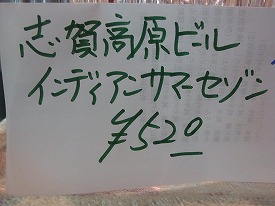 志賀高原ビール
インディアンサマーセゾン
¥520